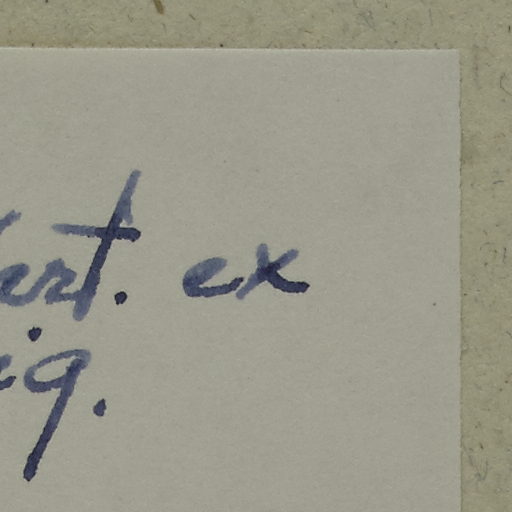 ert. ex
ig.